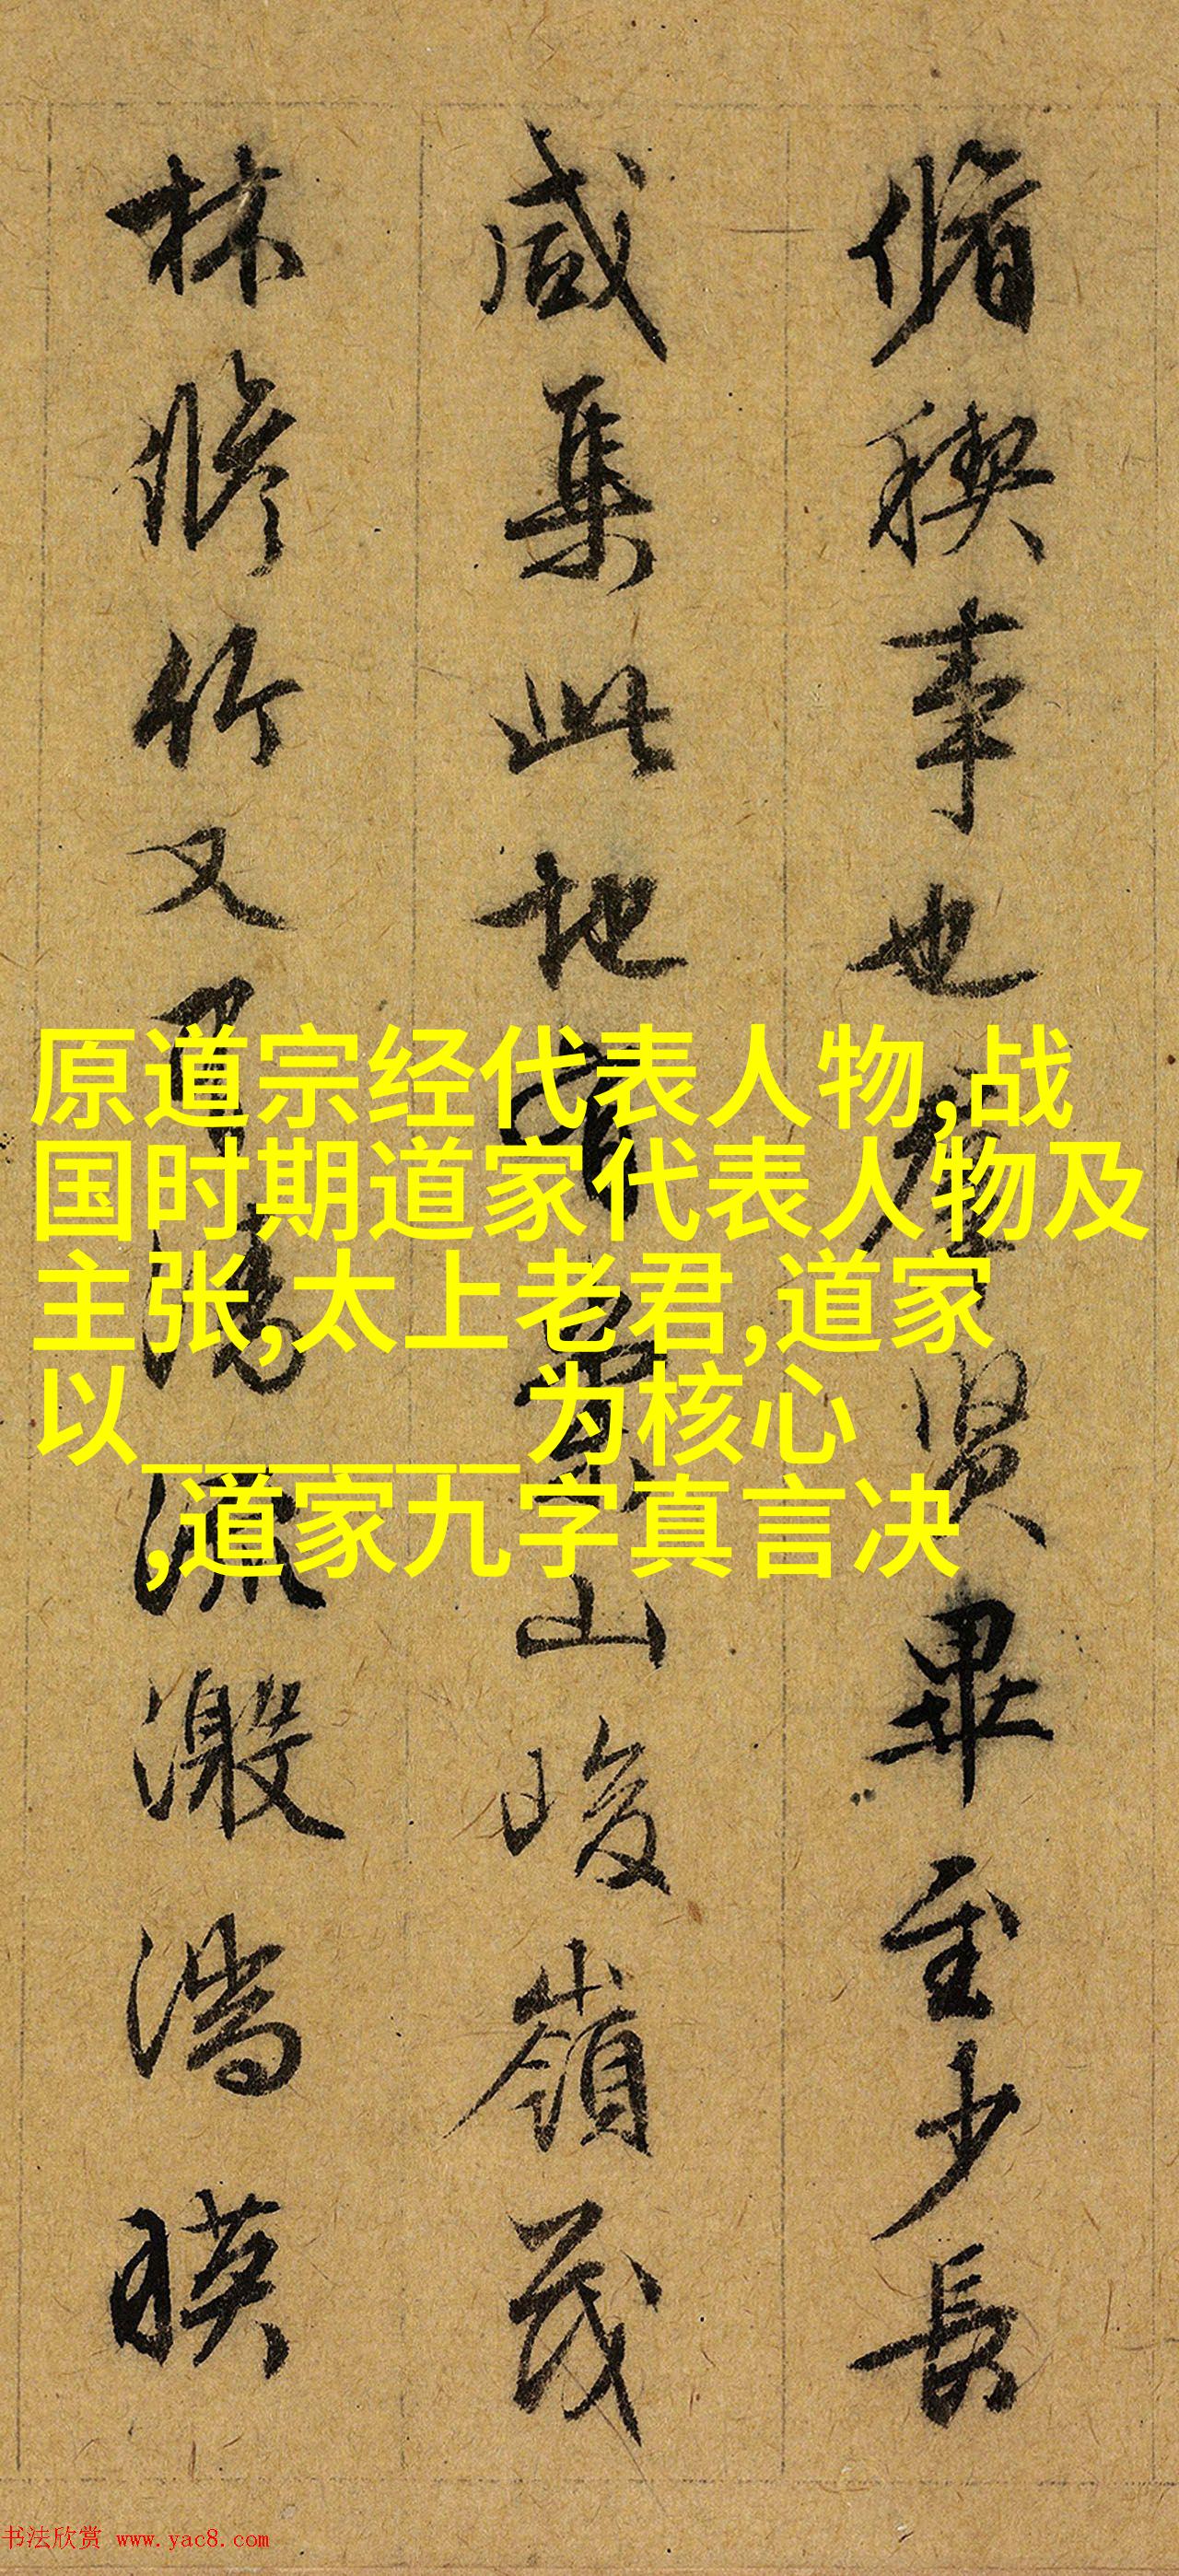 脩稧事也羣賢畢至少長
咸集此地有崇山峻嶺茂
林脩竹又有清流激湍暎
原道宗经代表人物,战
国时期道家代表人物及
主张,太上老君,道家
以_______为核心
,道家九字真言决
书法欣赏 www.yac8.com